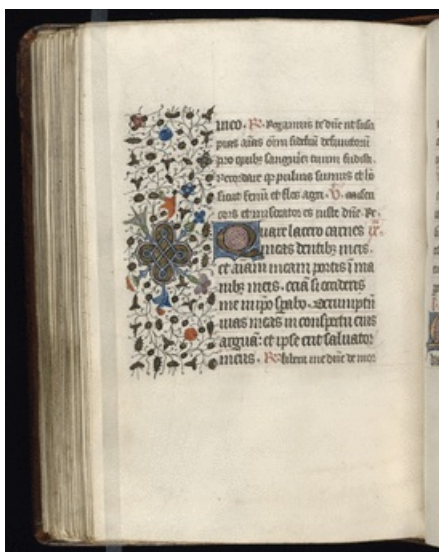 meo. R. Rogamus te dn̄e ut susci
pias aīas om̄i fideliū defunctorū
pro quibꝫ sanguinē tuum fudisti.
Recordare qꝫ puluis sumus et ho
sicut fenū et flos agri. V. misen
cors et miserator es iuste dn̄e. Re
Quare lacero carnes ix.
meas dentibꝫ meis.
et aīam meam portis ī ma
nibꝫ meis. eciā si occideris
me in ip̄o sꝑabo. Verumptn̄
uias meas in conspectu eius
arguā: et ip̄e erit saluator
meus. R. libera me dn̄e de mor